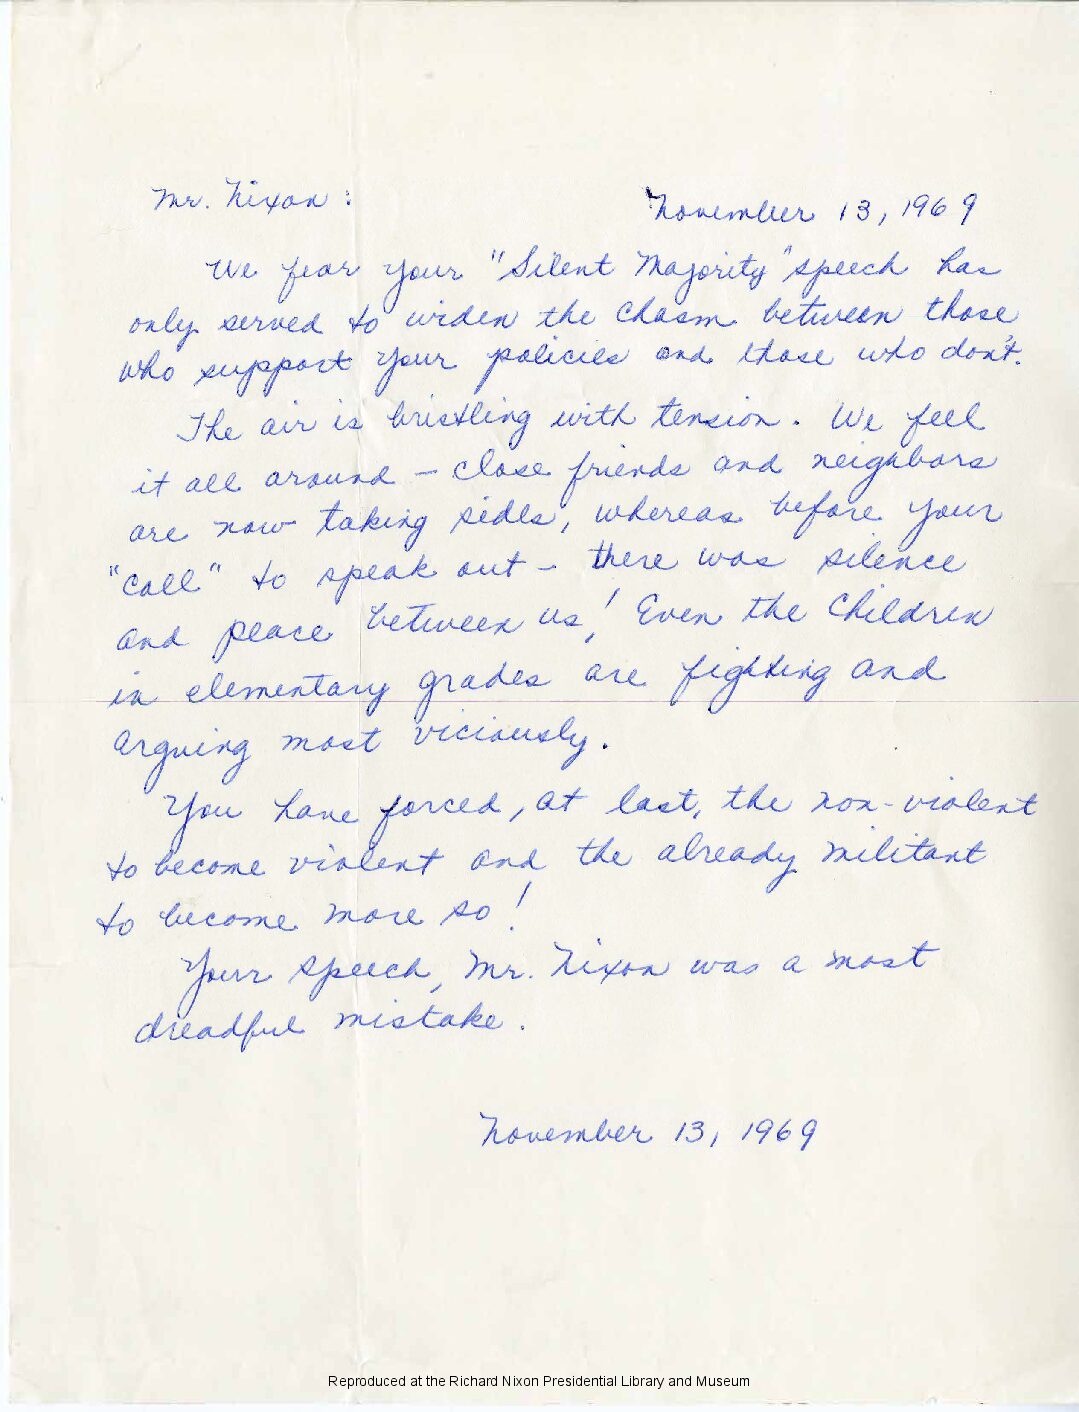 Mr. Nixon: November 13, 1969
We fear your "Silent Majority" speech has
only served to widen the chasm between those
who support your policies and those who don't.
The air is bristling with tension. We feel
it all around - close friends and neighbors
are now taking sides, whereas before your
"call" to speak out - there was silence
and peace between us! Even the children
in elementary grades are fighting and
arguing most viciously.
You have forced, at last, the non-violent
to become violent and the already militant
to become more so!
Your speech, Mr. Nixon was a most
dreadful mistake.
November 13, 1969
Reproduced at the Richard Nixon Presidential Library and Museum